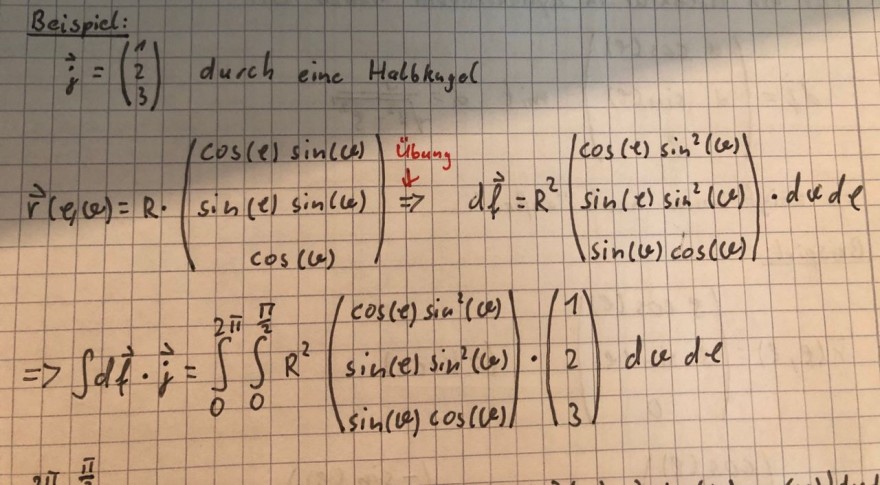 Beispiel:
j⃗ = (1 2 3) durch eine Halbkugel
r⃗(φ,ϑ) = R · (cos(φ) sin(ϑ) sin(φ) sin(ϑ) cos(ϑ)) Übung ↓ => df⃗ = R² (cos(φ) sin²(ϑ) sin(φ) sin²(ϑ) sin(ϑ) cos(ϑ)) · dϑ dφ
=> ∫ df⃗ · j⃗ = ∫₀^2π ∫₀^π/2 R² (cos(φ) sin²(ϑ) sin(φ) sin²(ϑ) sin(ϑ) cos(ϑ)) · (1 2 3) dϑ dφ
2π π/2